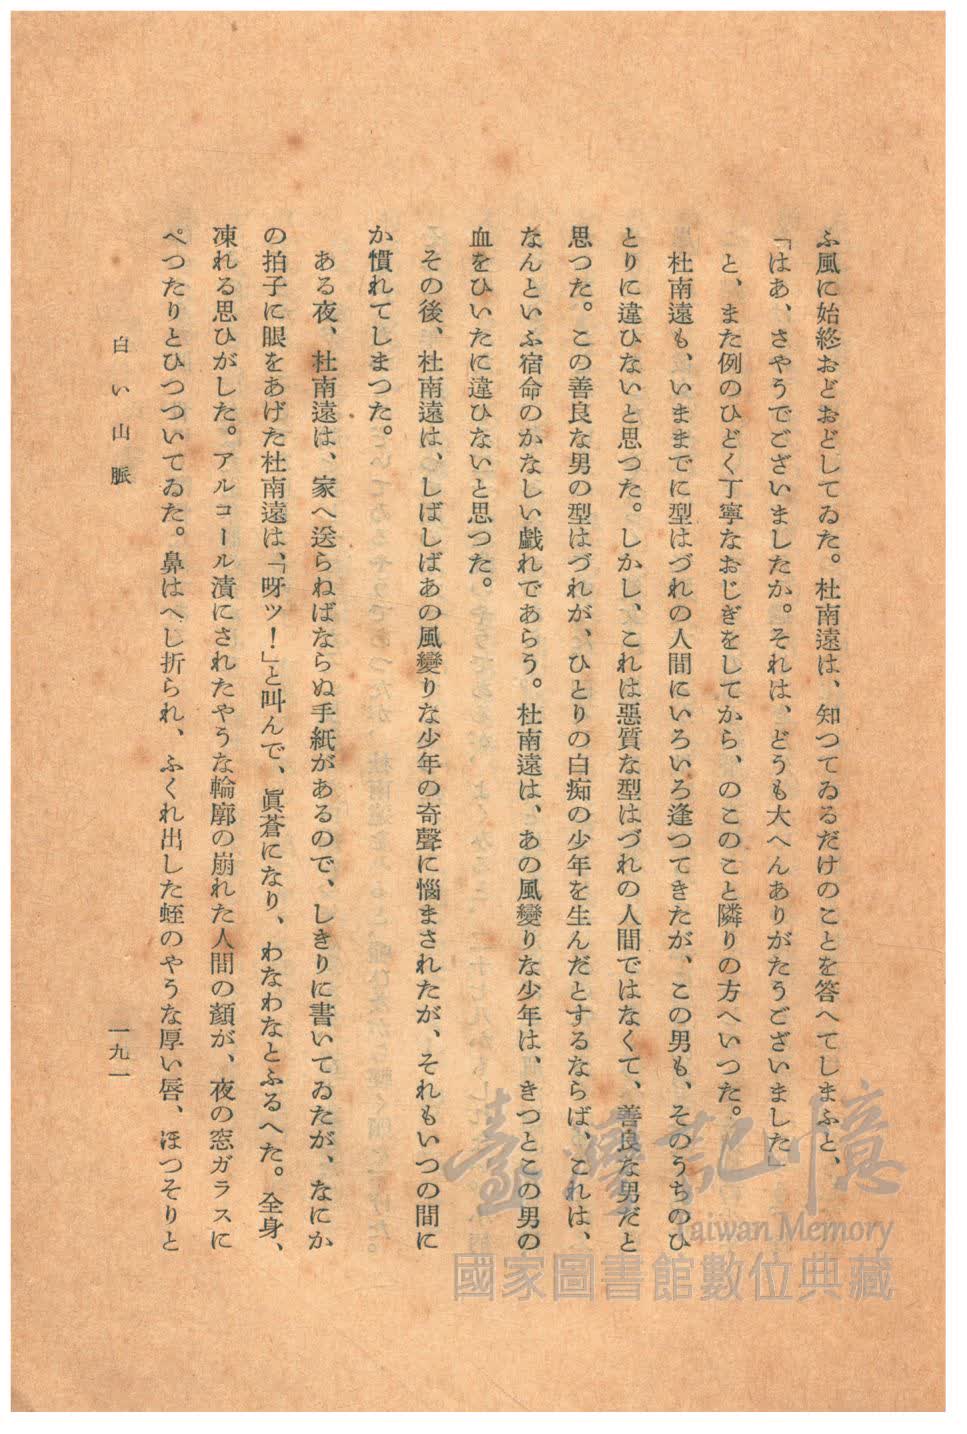 ふ風に始終おどおどしてゐた。杜南遠は、知つてゐるだけのことを答へてしまふと、
「はあ、さやうでございましたか。それは、どうも大へんありがたうございました」
と、また例のひどく丁寧なおじぎをしてから、のこのこと隣りの方へいつた。
杜南遠も、いままでに型はづれの人間にいろいろ逢つてきたが、この男も、そのうちのひ
とりに違ひないと思つた。しかし、これは惡質な型はづれの人間ではなくて、善良な男だと
思つた。この善良な男の型はづれが、ひとりの白痴の少年を生んだとするならば、これは、
なんといふ宿命のかなしい戯れであらう。杜南遠は、あの風變りな少年は、きつとこの男の
血をひいたに違ひないと思つた。
その後、杜南遠は、しばしばあの風變りな少年の奇聲に惱まされたが、それもいつの間に
か慣れてしまつた。
ある夜、杜南遠は、家へ送らねばならぬ手紙があるので、しきりに書いてゐたが、なにか
の拍子に眼をあげた杜南遠は、「呀ッ！」と叫んで、眞蒼になり、わなわなとふるへた。全身、
凍れる思ひがした。アルコール漬にされたやうな輪廓の崩れた人間の顔が、夜の窓ガラスに
ぺつたりとひつついてゐた。鼻はへし折られ、ふくれ出した蛭のやうな厚い唇、ほつそりと
白い山脈
一九一
臺灣記憶
Taiwan Memory
國家圖書館數位典藏